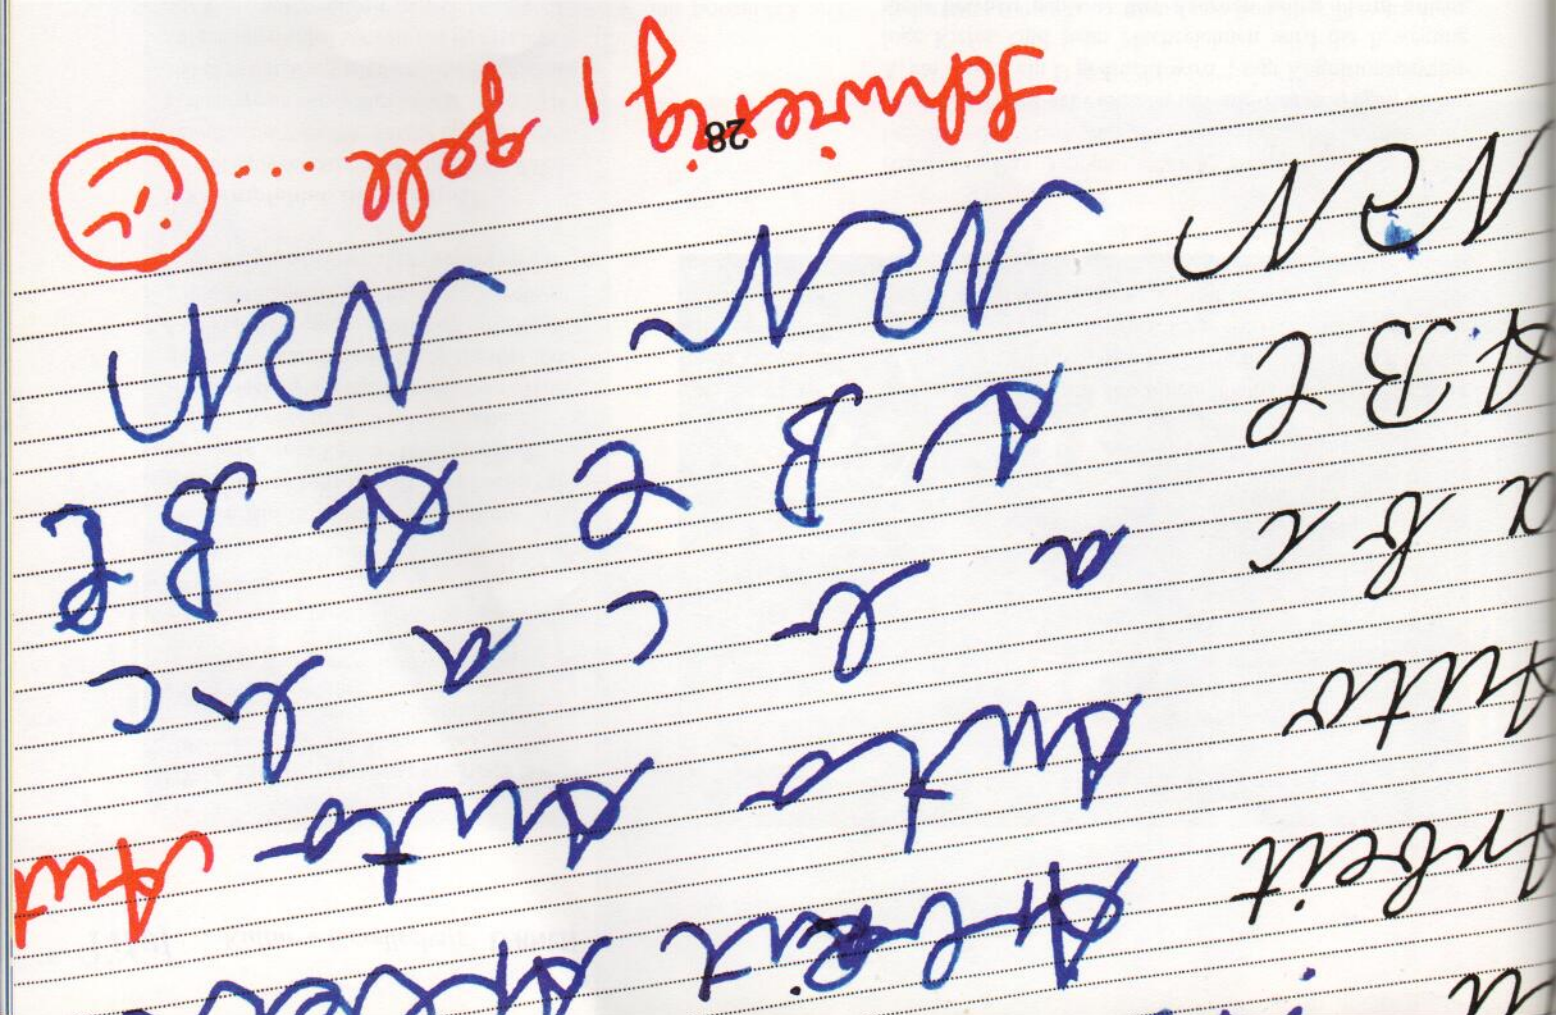 Arbeit Arbeit
Auto Auto Auto Aut
a b c a b c a b c
A B C A B C A B C
Schwierig, gell ...
28